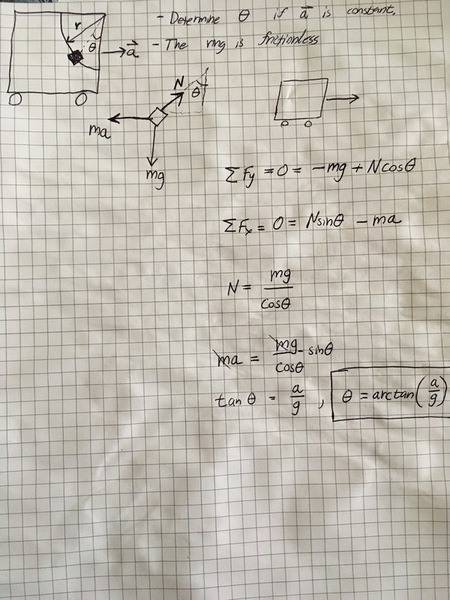 - Determine θ if a⃗ is constant.
- The ring is frictionless
r
θ
a⃗
N
θ
ma
mg
ΣFy = 0 = -mg + Ncosθ
ΣFx = 0 = Nsinθ - ma
N = mg/cosθ
ma = mg/cosθ · sinθ
tanθ = a/g , θ = arctan(a/g)